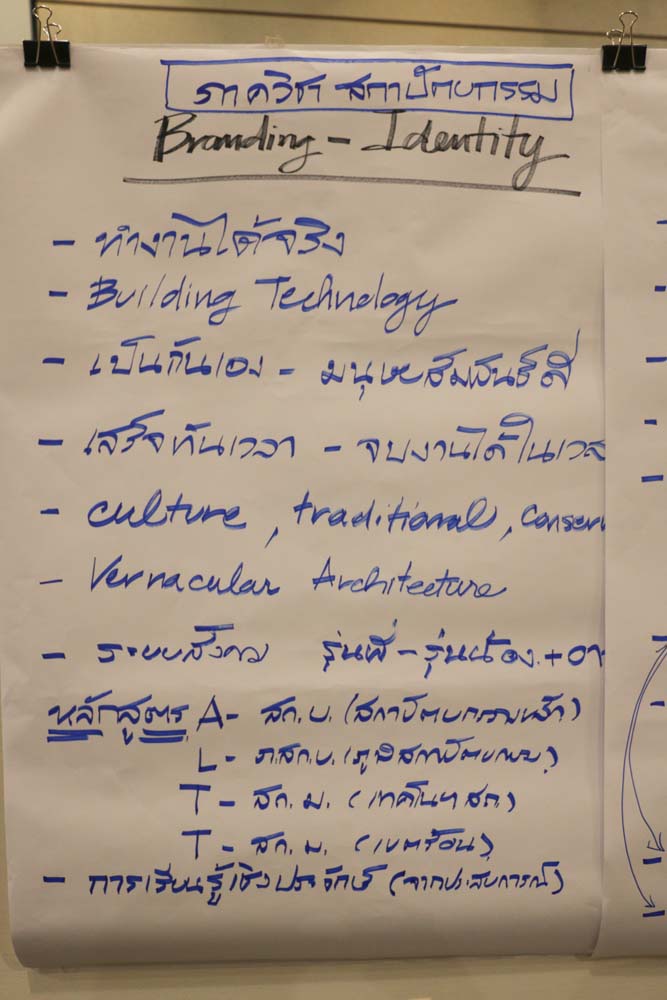 ภาควิชา สถาปัตยกรรม
Branding - Identity
- ทำงานได้จริง
- Building Technology
- เป็นกันเอง - มนุษยสัมพันธ์ดี
- เสร็จทันเวลา - จบงานได้ในเวล
- culture, traditional, Conser
- Vernacular Architecture
- ระบบสังคม รุ่นพี่ - รุ่นน้อง + อา
หลักสูตร A - สถ.บ. (สถาปัตยกรรมหลัก)
L - ภ.สถ.บ. (ภูมิสถาปัตยกรรม)
T - สถ.ม. (เทคโนฯ สถ.)
T - สถ.ม. (เขตร้อน)
- การเรียนรู้เชิงประจักษ์ (จากประสบการณ์)